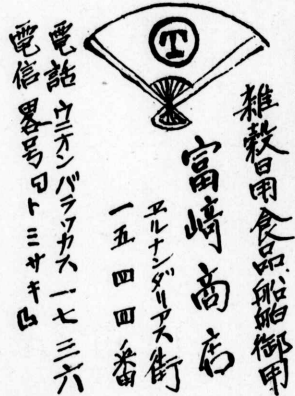 T
雑穀日用食品.船舶御用
富崎商店
エルナンダリアス街
一五四四番
電話 ウニオンバラッカス 一七三六
電信畧号「トミサキ」